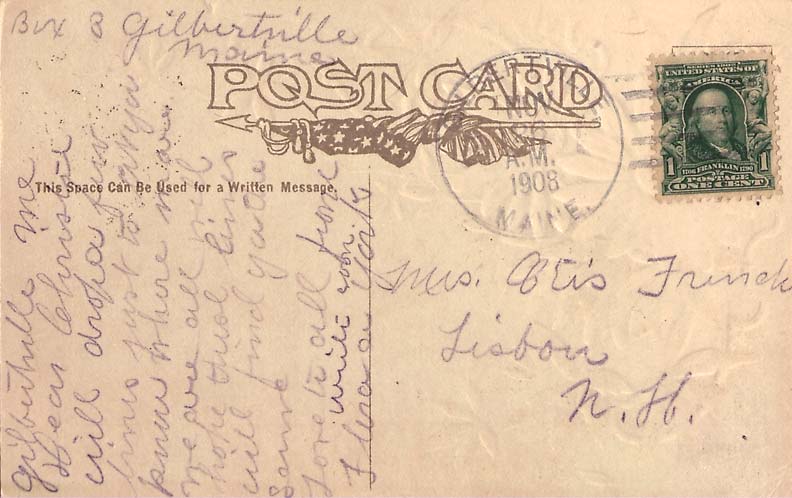 Box 3 Gilbertville
Maine
POST CARD
CANTON
NOV
26
A.M.
1908
MAINE.
SERIES 1902
UNITED STATES OF
AMERICA
1 1706 FRANKLIN 1790 1
POSTAGE
ONE CENT
This Space Can Be Used for a Written Message.
Gilbertville Me
Dear
will drop a few
lines just to let you
know where we are
we are all well
hope these lines
will find you the
same
Love to all from
Flora
write soon
Mrs. Otis French
Lisbon
N.H.